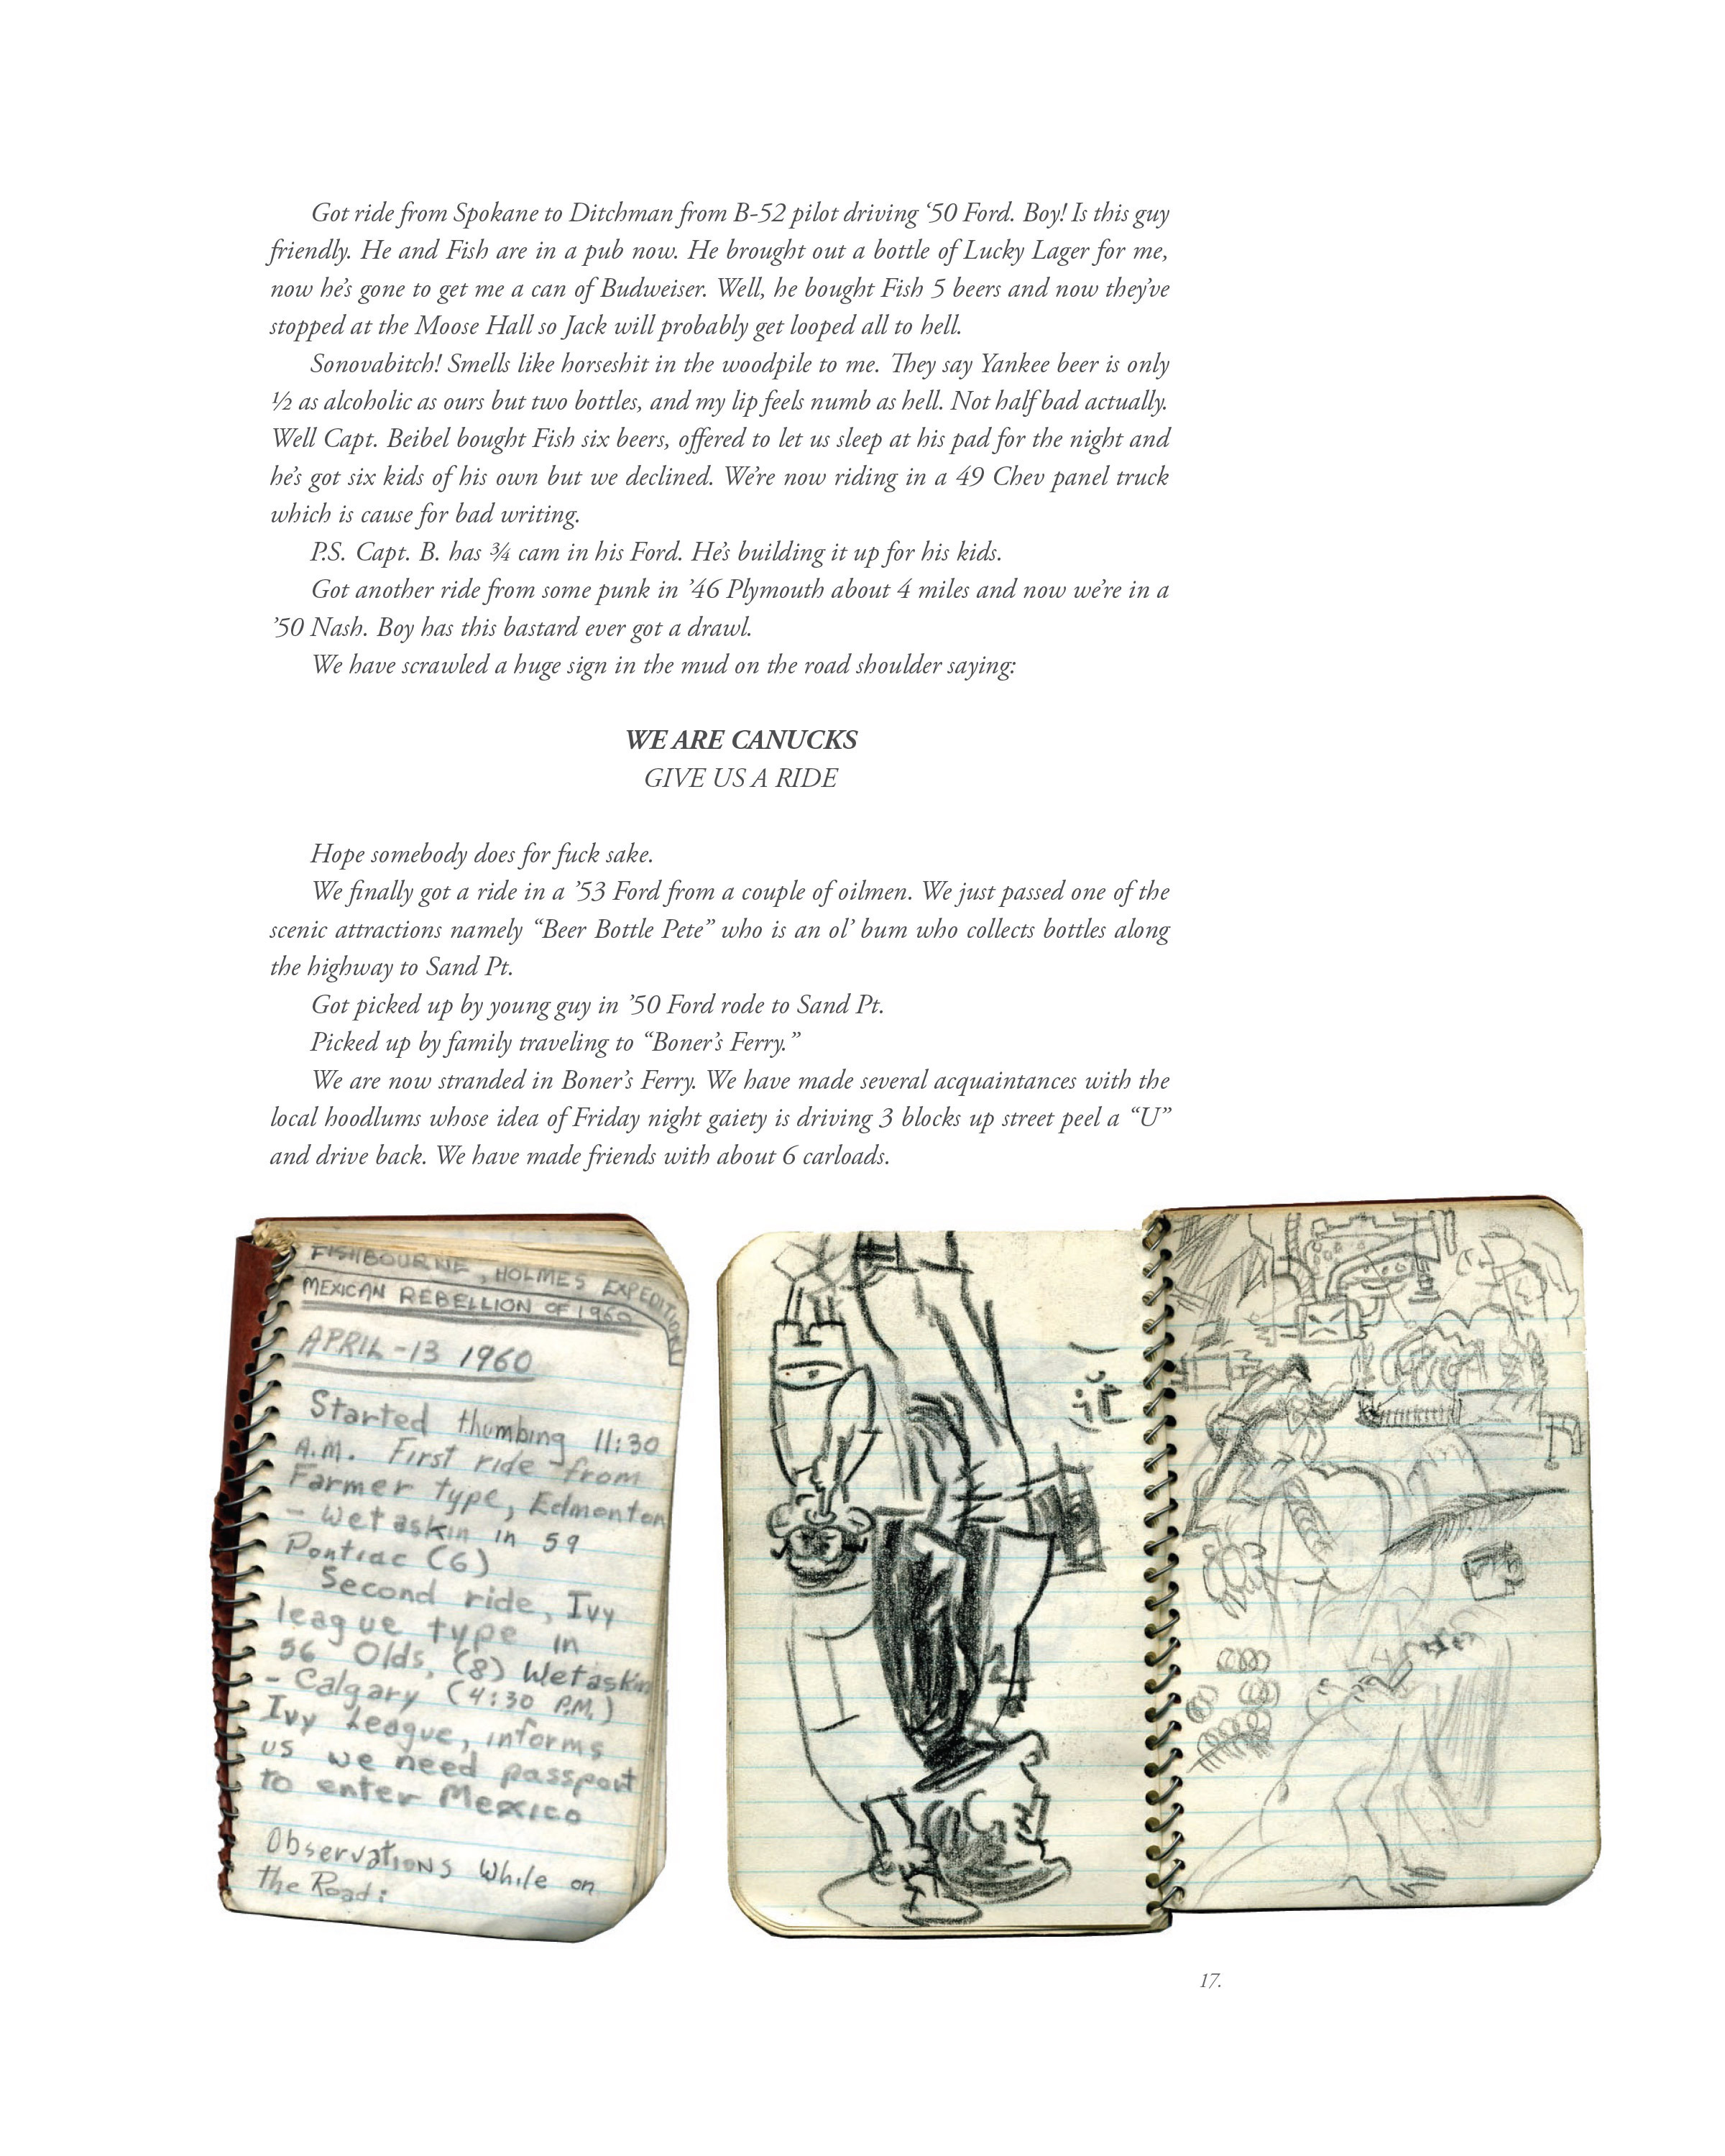 Got ride from Spokane to Ditchman from B-52 pilot driving ‘50 Ford. Boy! Is this guy
friendly. He and Fish are in a pub now. He brought out a bottle of Lucky Lager for me,
now he’s gone to get me a can of Budweiser. Well, he bought Fish 5 beers and now they’ve
stopped at the Moose Hall so Jack will probably get looped all to hell.
Sonovabitch! Smells like horseshit in the woodpile to me. They say Yankee beer is only
½ as alcoholic as ours but two bottles, and my lip feels numb as hell. Not half bad actually.
Well Capt. Beibel bought Fish six beers, offered to let us sleep at his pad for the night and
he’s got six kids of his own but we declined. We’re now riding in a 49 Chev panel truck
which is cause for bad writing.
P.S. Capt. B. has ¾ cam in his Ford. He’s building it up for his kids.
Got another ride from some punk in ’46 Plymouth about 4 miles and now we’re in a
’50 Nash. Boy has this bastard ever got a drawl.
We have scrawled a huge sign in the mud on the road shoulder saying:
WE ARE CANUCKS
GIVE US A RIDE
Hope somebody does for fuck sake.
We finally got a ride in a ’53 Ford from a couple of oilmen. We just passed one of the
scenic attractions namely “Beer Bottle Pete” who is an ol’ bum who collects bottles along
the highway to Sand Pt.
Got picked up by young guy in ’50 Ford rode to Sand Pt.
Picked up by family traveling to “Boner’s Ferry.”
We are now stranded in Boner’s Ferry. We have made several acquaintances with the
local hoodlums whose idea of Friday night gaiety is driving 3 blocks up street peel a “U”
and drive back. We have made friends with about 6 carloads.
FISHBOURNE, HOLMES EXPEDITION
MEXICAN REBELLION OF 1960
APRIL-13 1960
Started thumbing 11:30
A.M. First ride from
Farmer type, Edmonton
- Wetaskin in 59
Pontiac (6)
Second ride, Ivy
league type in
56 Olds, (8) Wetaskin
- Calgary (4:30 P.M.)
Ivy League, informs
us we need passport
to enter Mexico
Observations While on
the Road:
17.